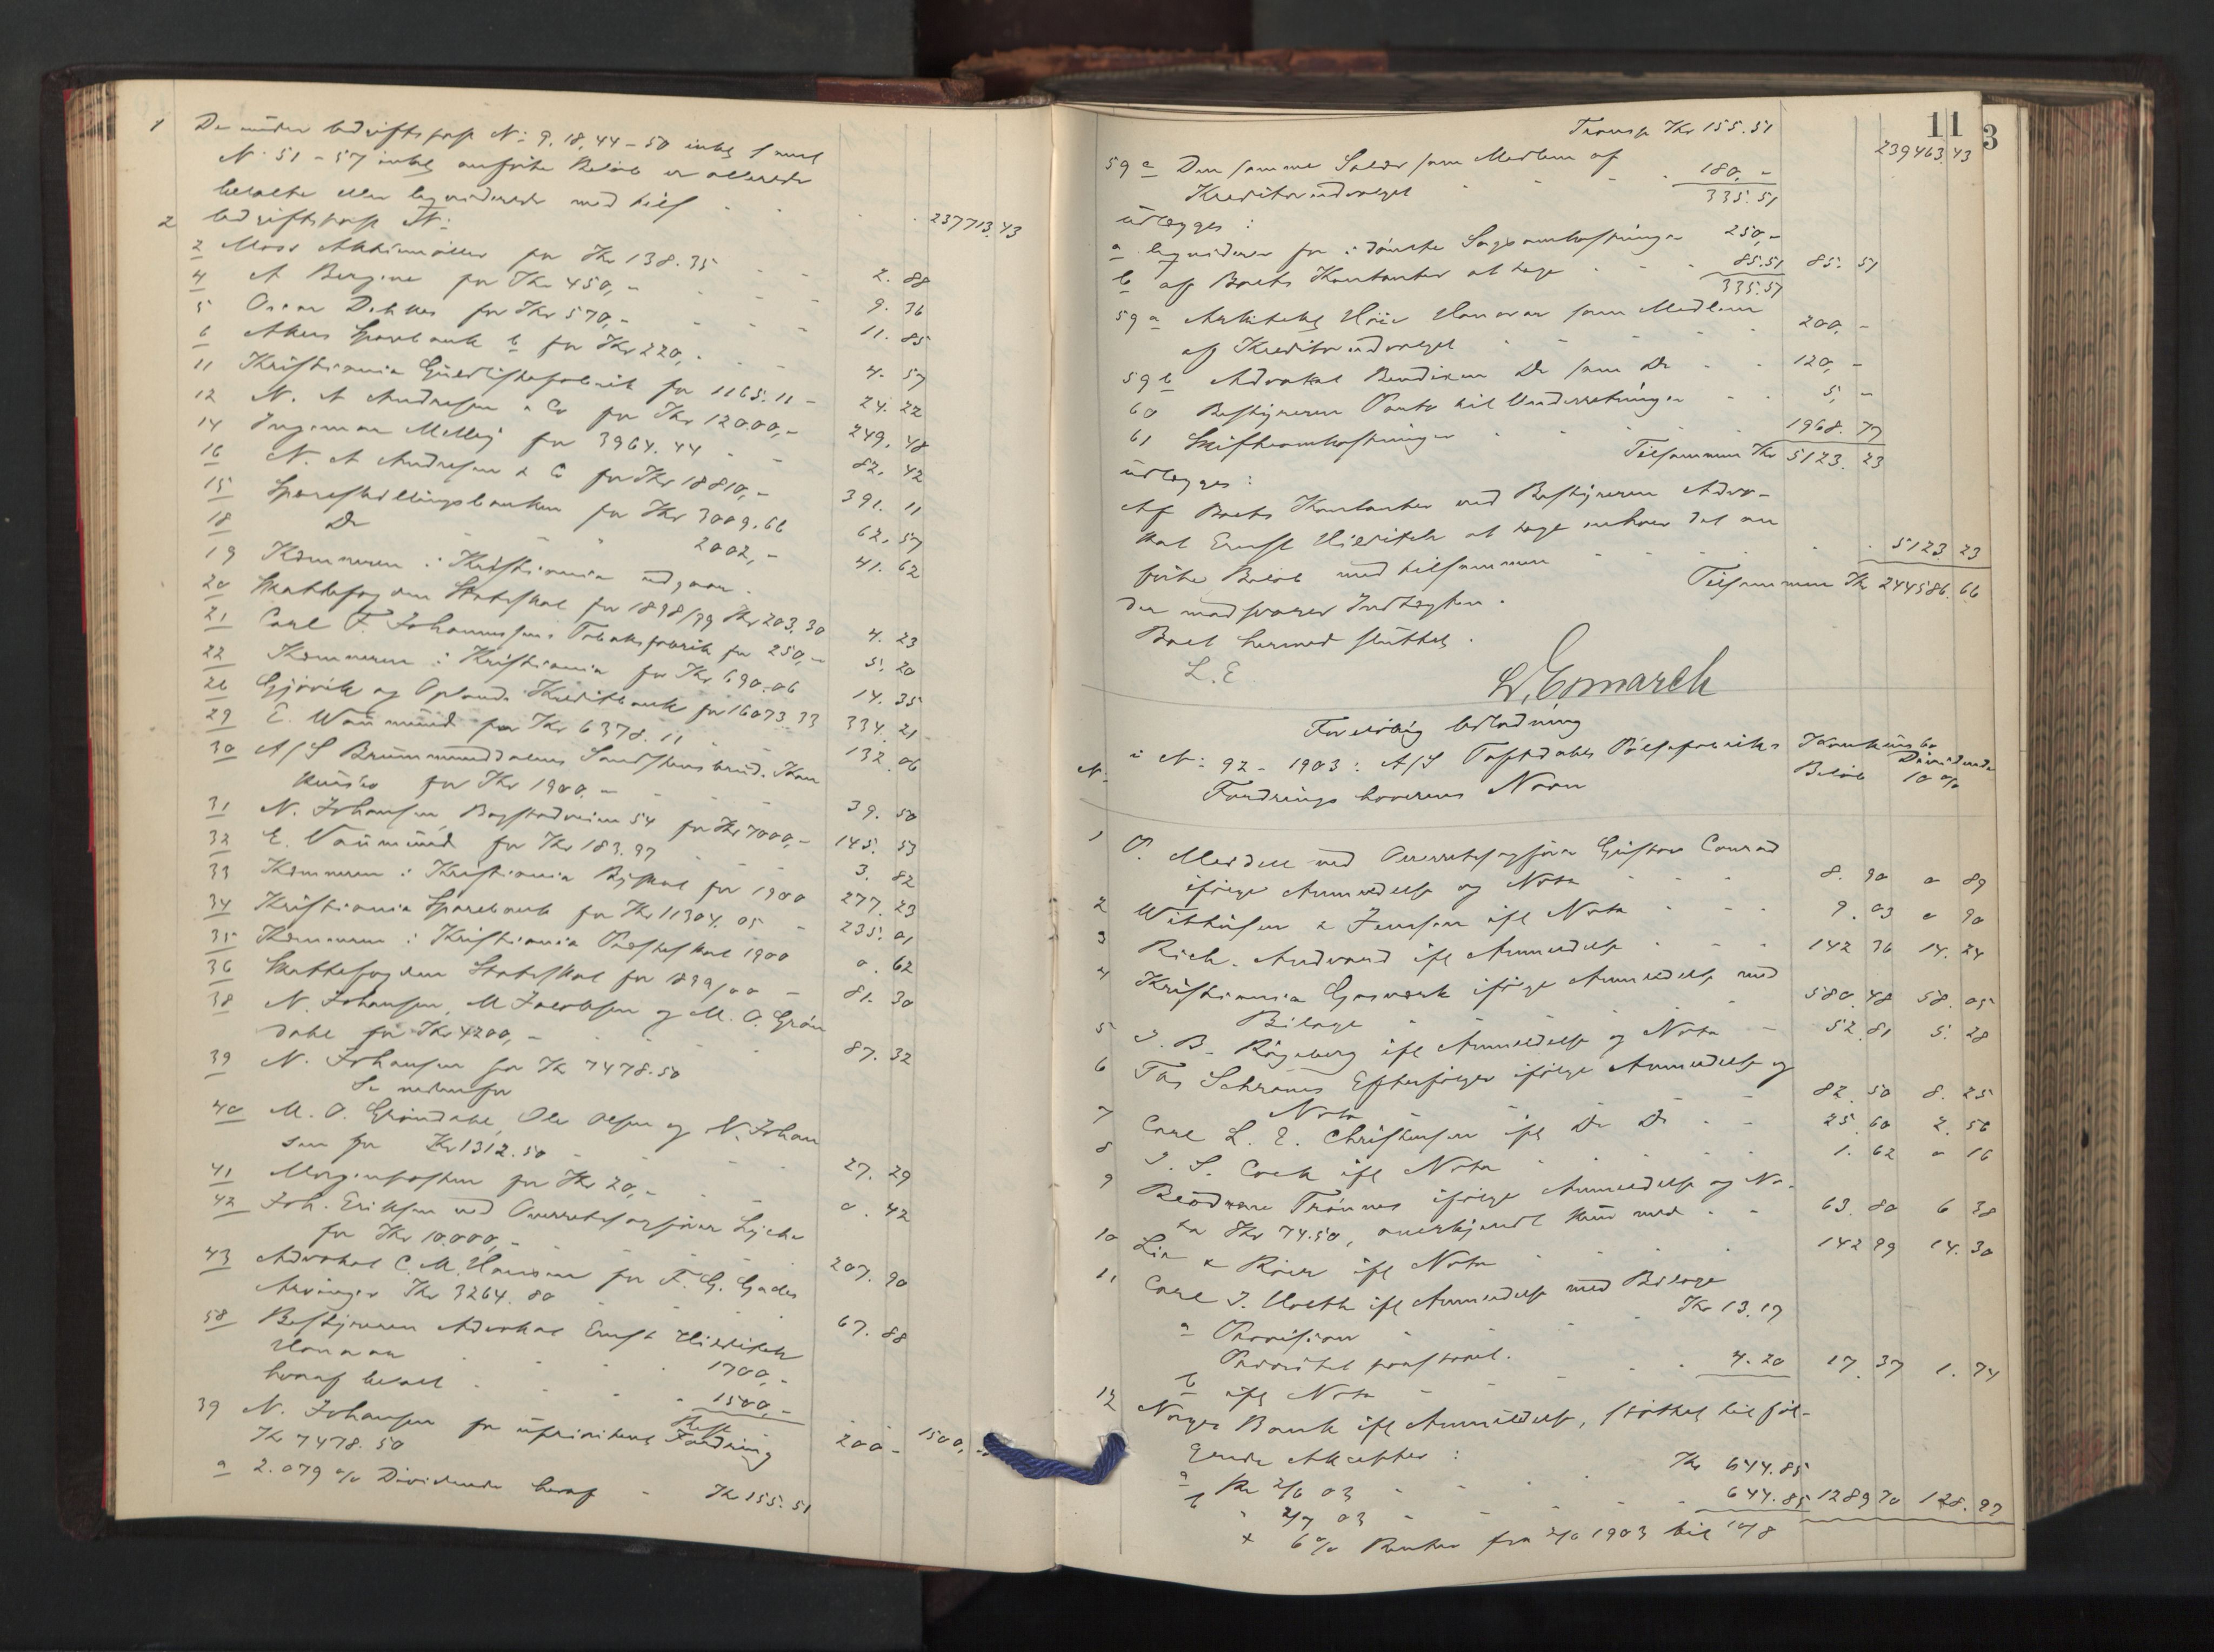 1 De under bedriftspost No 9, 18, 44 - 50 inkl samt
No 51 - 57 inkl anførte Beløb er allerede
betalte eller likviderede med tils. 237713.43
2 bedriftspost No:
2 Moss Aktiemøller for Kr 138.35 2.88
4 A Bergene for Kr 450,- 9.36
5 Oscar for Kr 570,- 11.85
6 Akers Sparebank b for Kr 220,- 4.57
11 Kristiania Guldlistefabrik for 1165.11 - 24.22
12 N. A Andresen & Co for Kr 12000,- 249.48
14 Ingeniør for 3964.44 82.42
16 N. A Andresen & Co for Kr 18810,- 391.11
15 Spareskillingsbanken for Kr 3009.66 62.57
18 Do 2002,- 41.62
19 Kæmneren i Kristiania udgaar.
20 Skattefogden Statsskat for 1898/99 Kr 203.30 4.23
21 Carl F. Johannessens Tobaksfabrik for 250,- 5.20
22 Kæmneren i Kristiania for Kr 690.06 14.35
26 Gjøvik og Oplands Kreditbank for 16073.33 334.21
29 E. Vaummund for Kr 6378.11 132.06
30 A/S Brummunddalens Sandstensbrud. Kon
kursbo for Kr 1900.- 39.50
31 N. Johansen, Bogstadveien 54 for Kr 7000,- 145.53
32 E. Vaummund for Kr 183.97 3.82
33 Kæmneren i Kristiania Byskat for 1900 277.23
34 Kristiania Sparebank for Kr 11304.05 235.01
35 Kæmneren i Kristiania Præsteskat 1900 0.62
36 Skattefogden Statsskat for 1899/00 - 81.30
38 N. Johansen, M Jacobsen og M. O. Grøn
dahl for Kr 4200,- 87.32
39 N. Johansen for Kr 7478.50
Se nedenfor
40 M. O. Grøndahl, Ole Olsen og N. Johan
sen for Kr 1312.50 27.29
41 Morgenposten for Kr 20,- 0.42
42 Joh. Eriksen ved Overretssagfører Lycke
for Kr 10.000,- 207.90
43 Advokat C. M. Hansson for F. G. Gades
Arvinger Kr 3264.80 67.88
58 Bestyreren Advokat Ernst
Honorar 1700,-
hvoraf betalt 1500,-
Rest 200 - 1500,-
39 N. Johansen for uprioritert Fordring
Kr 7478.50
a 2.079 % Dividende heraf Kr 155.51
11
3
Transp Kr 155.51 239463.43
59 c Den samme Salær som Medlem af
Kreditorudvalget 180,-
335.51
udlægges:
a likviderer for idømte Sagsomkostninger 250,-
b af Boets Kontanter at tage 85.51 85.51
335.51
59 a Arkitekt Høie Honorar som Medlem
af Kreditorudvalget 200,-
59 b Advokat Bendixen Do som Do 120,-
60 Bestyreren Porto til Underretninger 5,-
61 Skifteomkostninger 1968.77
Tilsammen Kr 5123.23
udlægges:
Af Boets Kontanter ved Bestyreren Advo-
kat Ernst at tage enhver det an
førte Beløb med tilsammen 5123.23
Tilsammen Kr 244586.66
der modsvarer Indtægten.
Boet hermed sluttet.
L. E
L. Esmarch
Foreløbig Udlodning
i No: 92 - 1903: A/S Pølsefabriks Konkursbo
No Fordringshaverens Navn Beløb Dividende 10 %
1 O. Mærdell ved Overretssagfører Gustav Conrad
ifølge Anmeldelse og Nota 8.90 0 89
2 Witthusen & Jensson ifl Nota 9.03 0 90
3 Rich. Andvord ifl Anmeldelse 142 36 14.24
4 Kristiania Gasværk ifølge Anmeldelse med
Bilage 580.48 58.05
5 J. B. Rogeberg ifl Anmeldelse og Nota - 52 81 5.28
6 Efterfølger ifølge Anmeldelse og
Nota 82.50 8.25
7 Carl L. E. Christensen ifl Do Do 25.60 2.56
8 J. S. Cock ifl Nota 1.62 0 16
9 Brødrene Trønnes ifølge Anmeldelse og No-
ta Kr 74.50, anerkjendt kun med 63.80 6 38
10 Lie & Røer ifl Nota 142 99 14.30
11 Carl J. Hseth ifl Anmeldelse med Bilage
a Provision Kr 13.17
b ifl Nota 4.20 17.37 1.74
12 Norges Bank ifl Anmeldelse, støttet til føl-
gende Akcepter:
a Pr 2/6 03 Kr 644.85
b " 2/7 03 644.85 1289 70 128.97
+ 6 % Renter fra 2/6 1903 til 10/8